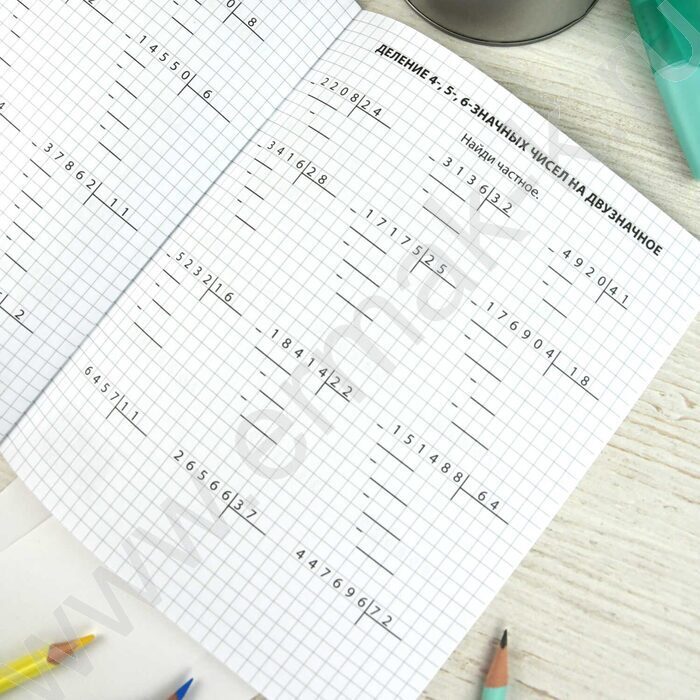 0 8
14550 6
37862 11
2
ДЕЛЕНИЕ 4-, 5-, 6-ЗНАЧНЫХ ЧИСЕЛ НА ДВУЗНАЧНОЕ
Найди частное.
2208 24
3136 32
4920 41
3416 28
17175 25
176904 18
5232 16
18414 22
151488 64
6457 11
26566 37
447696 72